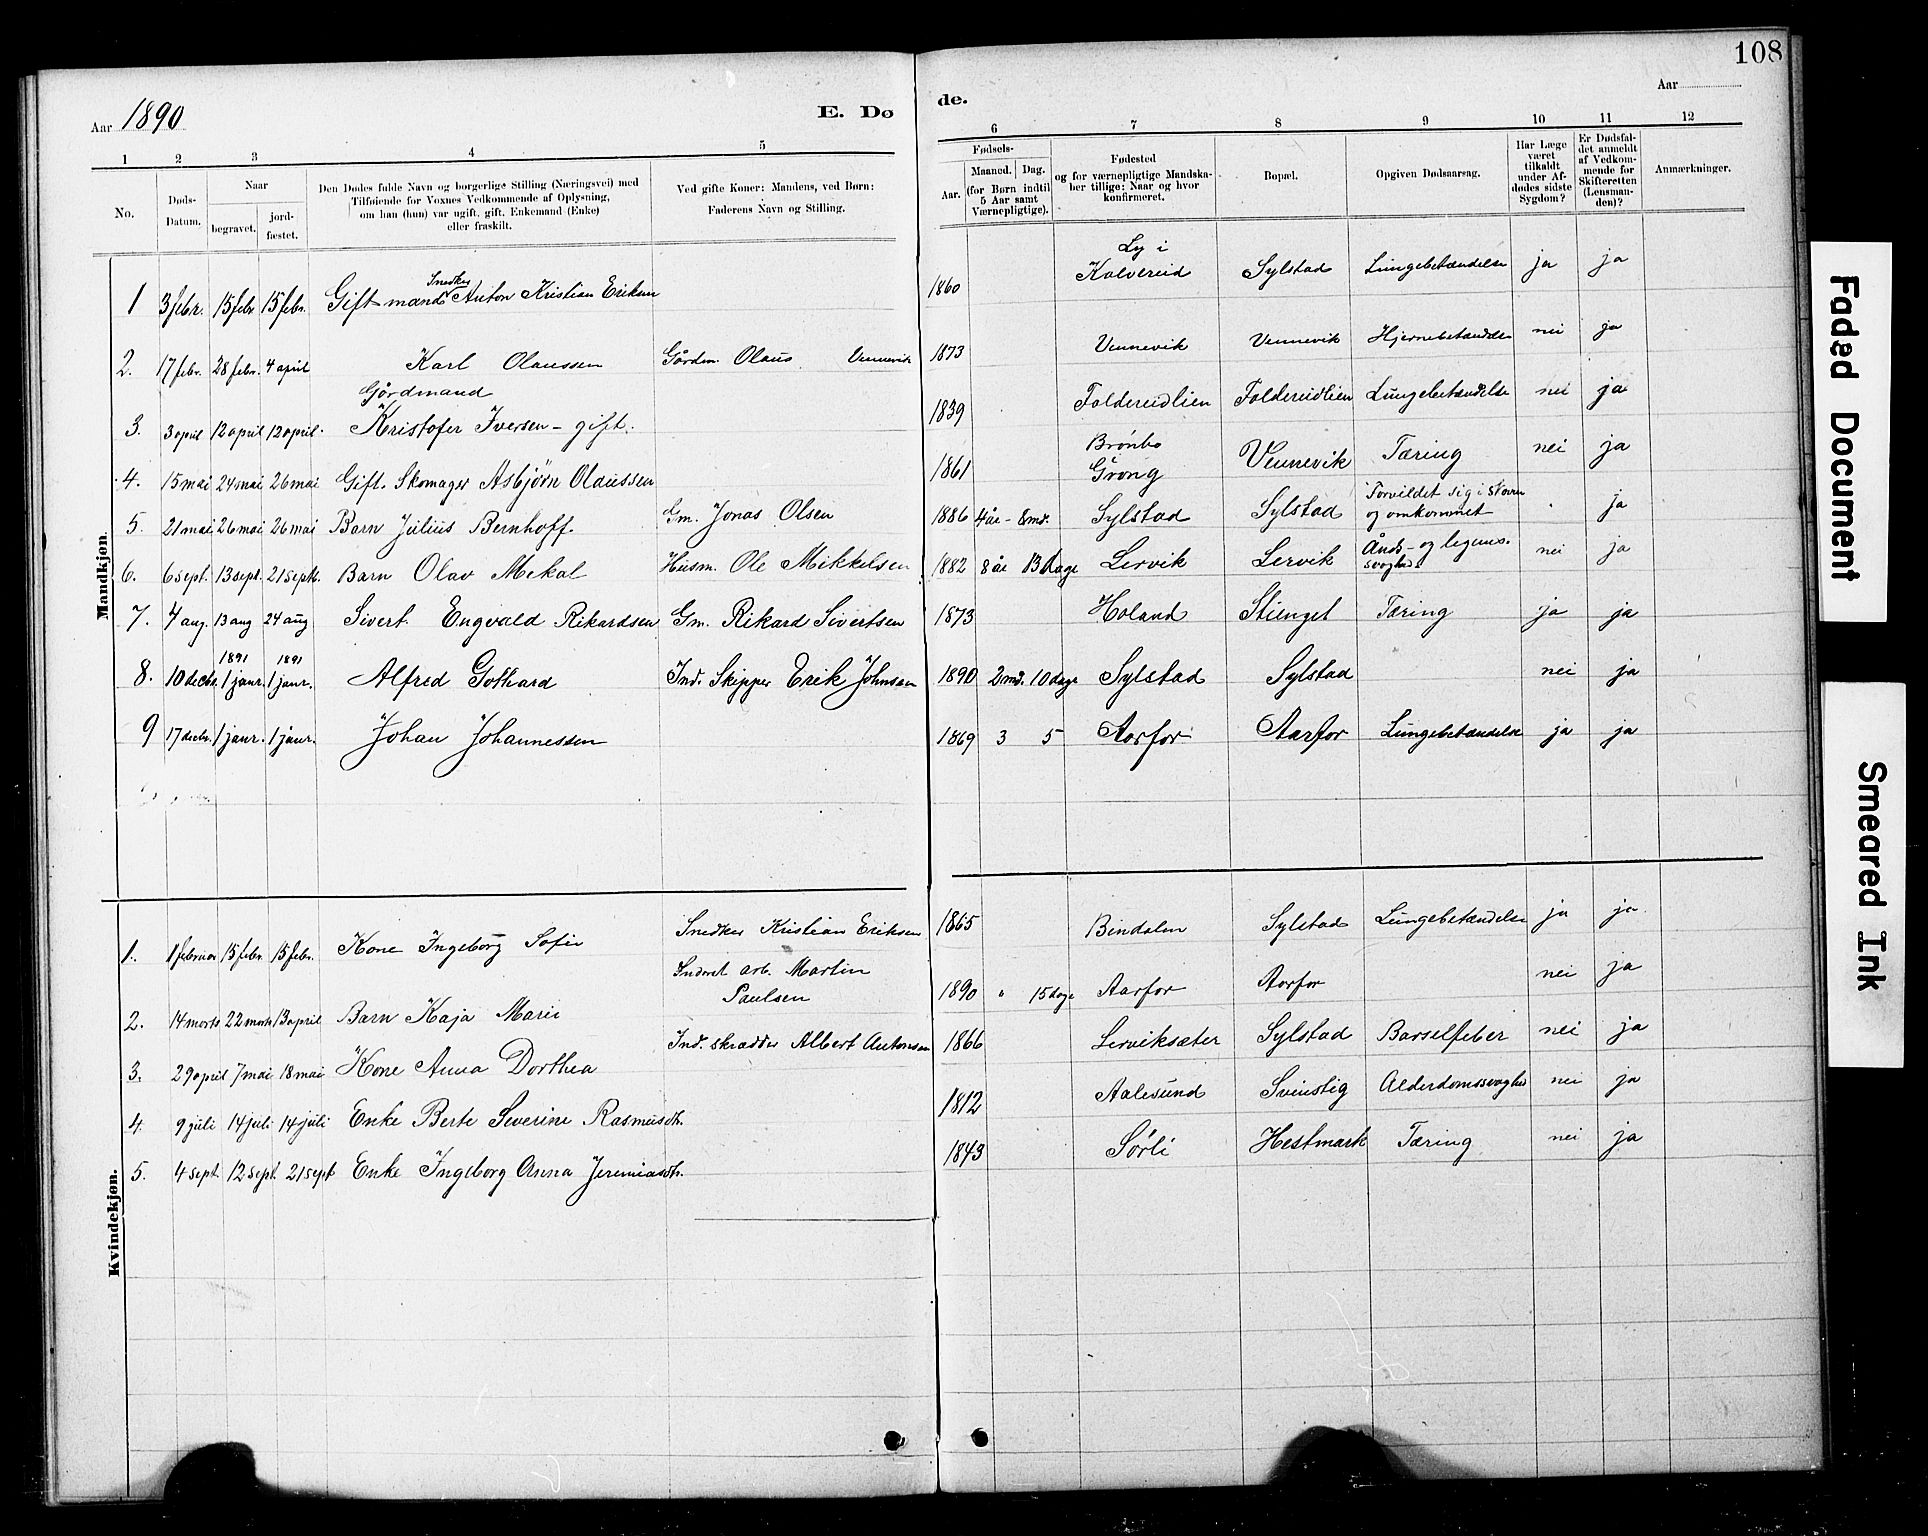 108
Aar 1890
E. Dø
de.
Aar
1 2 3 4 5 6 7 8 9 10 11 12
No.
Døds-Datum.
Naar
begravet.
jord-fæstet.
Den Dødes fulde Navn og borgerlige Stilling (Næringsvei) med
Tilføiende for Voxnes Vedkommende af Oplysning,
om han (hun) var ugift, gift, Enkemand (Enke)
eller fraskilt.
Ved gifte Koner: Mandens, ved Børn:
Faderens Navn og Stilling.
Fødsels-
Aar.
Maaned. Dag.
(for Børn indtil
5 Aar samt
Værnepligtige).
Fødested
og for værnepligtige Mandska-
ber tillige: Naar og hvor
konfirmeret.
Bopæl.
Opgiven Dødsaarsag.
Har Læge
været
tilkaldt
under Af-
dødes sidste
Sygdom?
Er Dødsfal-
det anmeldt
af Vedkom-
mende for
Skifteretten
(Lensman-
den)?
Anmærkninger.
Mandkjøn.
1 3 febr. 15 febr 15 febr. Gift mand Snedker Anton Kristian Eriksen 1860 Ly i Kolvereid Sylstad Lungebetændelse ja ja
2. 17 febr. 28 febr. 4 april Karl Olaussen Gårdm. Olaus Vennevik 1873 Vennevik Vennevik Hjernebetændelse nei ja
3. 3 april 12 april 12 april. Gårdmand Kristofer Iversen - gift. 1839 Foldereidlien Foldereidlien Lungebetændelse nei ja
4. 15 mai 24 mai 26 mai Gift. Skomager Asbjørn Olaussen 1861 Brønbo Grong Vennevik Tæring nei ja
5. 21 mai 26 mai 26 mai Barn Julius Bernhoff Gm. Jonas Olsen 1886 4 år - 8 md. Sylstad Sylstad Forvildet sig i skoven og omkommet " ja
6. 6 sept. 13 sept. 21 sept. Barn Olav Mekal Husm. Ole Mikkelsen 1882 8 år 13 dage Lervik Lervik Ånds- og legems-svaghed nei ja
7. 4 aug. 13 aug 24 aug Sivert Engvald Rikardsen Gm. Rikard Sivertsen 1873 Holand Stienget Tæring ja ja
8. 10 decbr. 1891 1 janr. 1891 1 janr. Alfred Gothard Ind. Skipper Erik Johnsen 1890 2 md. 10 dage Sylstad Sylstad nei ja
9 17 decbr. 1 janr. 1 janr. Johan Johannessen 1869 3 5 Aarfor Aarfor Lungebetændelse ja ja
Kvindekjøn.
1. 1 februar 15 febr. 15 febr. Kone Ingeborg Sofie Snedker Kristian Eriksen 1865 Bindalen Sylstad Lungebetændelse ja ja
2. 14 marts 22 marts 13 april Barn Kaja Marie Inderst arb. Martin Paulsen 1890 " 15 dage Aarfor Aarfor nei ja
3. 29 april 7 mai 18 mai Kone Anna Dorthea Ind. skrædder Albert Antonsen 1866 Lerviksæter Sylstad Barselfeber nei ja
4. 9 juli 14 juli 14 juli Enke Berte Severine Rasmusdtr. 1812 Aalesund Svinstig Alderdomssvaghed nei ja
5. 4 sept. 12 sept. 21 sept Enke Ingeborg Anna Jeremiasdtr. 1843 Sørli Hestmark Tæring nei ja
Faded Document
Smeared Ink